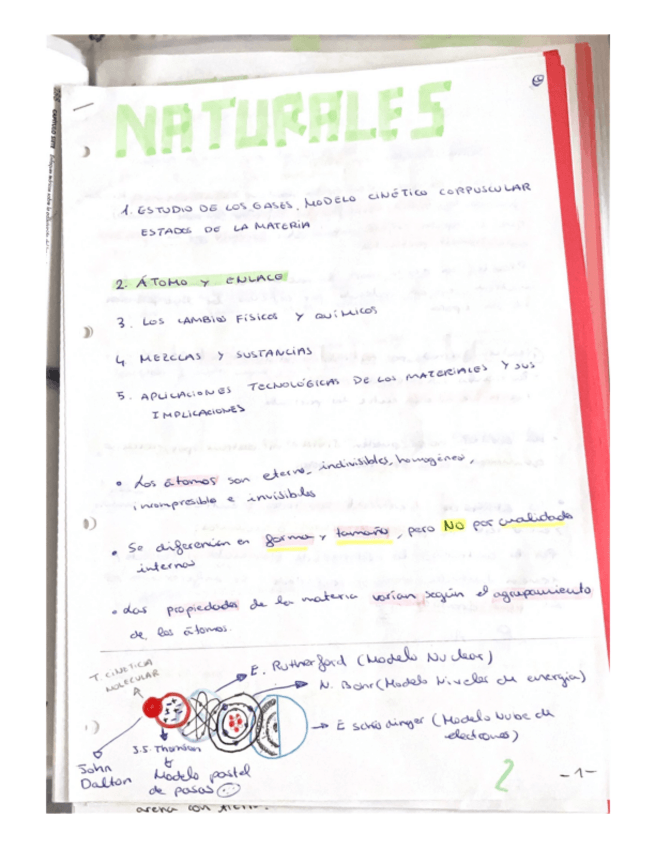 NATURALES
1. ESTUDIO DE LOS GASES, MODELO CINÉTICO CORPUSCULAR
ESTADOS DE LA MATERIA
2. ÁTOMO Y ENLACE
3. LOS CAMBIOS FÍSICOS Y QUÍMICOS
4 MEZCLAS Y SUSTANCIAS
5. APLICACIONES TECNOLÓGICAS DE LOS MATERIALES Y SUS
IMPLICACIONES
• Los átomos son eternos, indivisibles, homogéneos,
incompresible e invisibles
• Se diferencian en forma y tamaño, pero NO por cualidades
internas
• Las propiedades de la materia varian según el agrupamiento
de los átomos.
T. CINÉTICA
MOLECULAR
E. Rutherford (Modelo Nuclear)
N. Bohr (Modelo Niveles de energía)
E Schrödinger (Modelo Nube de
electrones)
J.J. Thomson
Modelo pastel
de pasas
John
Dalton
2
-1-
arena con